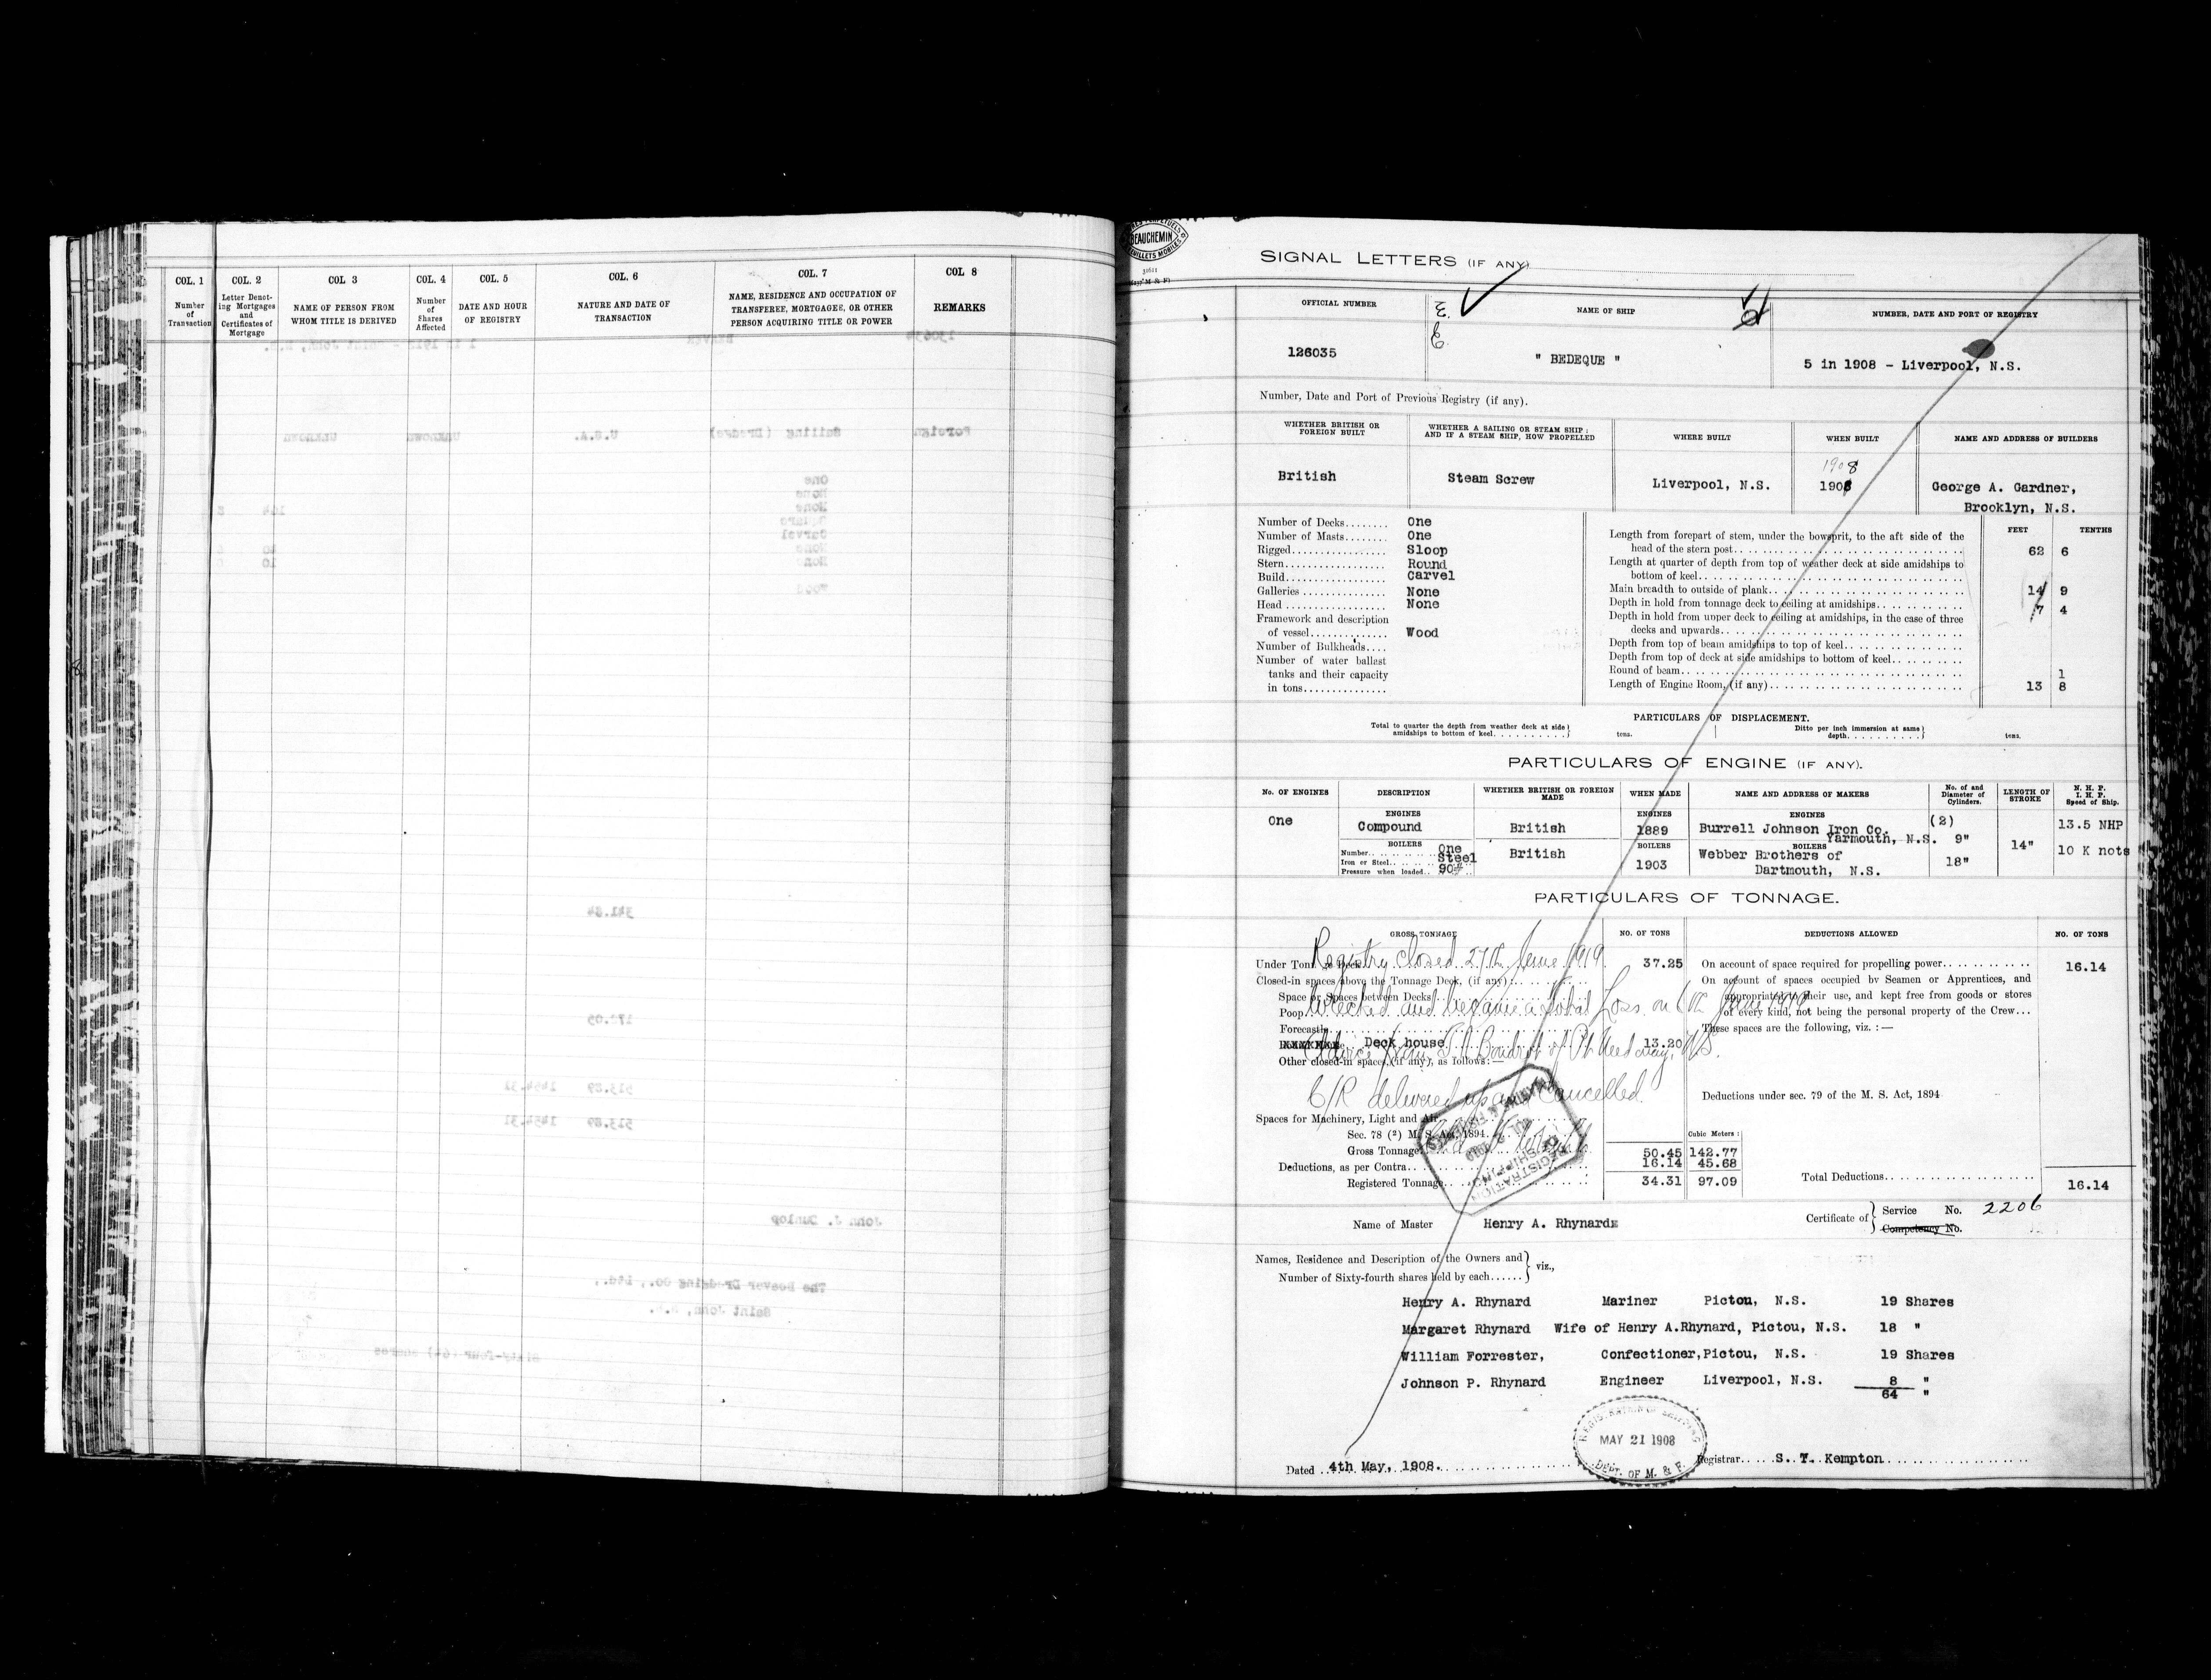 COL. 1
Number
of
Transaction
COL. 2
Letter Denot-
ing Mortgages
and
Certificates of
Mortgage
COL 3
NAME OF PERSON FROM
WHOM TITLE IS DERIVED
COL. 4
Number
of
Shares
Affected
COL. 5
DATE AND HOUR
OF REGISTRY
COL. 6
NATURE AND DATE OF
TRANSACTION
COL. 7
NAME, RESIDENCE AND OCCUPATION OF
TRANSFEREE, MORTGAGEE, OR OTHER
PERSON ACQUIRING TITLE OR POWER
COL 8
REMARKS
BEAUCHEMIN
SIGNAL LETTERS (IF ANY)
OFFICIAL NUMBER
NAME OF SHIP
NUMBER, DATE AND PORT OF REGISTRY
126035
" BEDEQUE "
5 in 1908 - Liverpool, N.S.
Number, Date and Port of Previous Registry (if any).
WHETHER BRITISH OR
FOREIGN BUILT
WHETHER A SAILING OR STEAM SHIP ;
AND IF A STEAM SHIP, HOW PROPELLED
WHERE BUILT
WHEN BUILT
NAME AND ADDRESS OF BUILDERS
British
Steam Screw
Liverpool, N.S.
1908
1908
George A. Gardner,
Brooklyn, N.S.
Number of Decks........ One
Number of Masts........ One
Rigged................. Sloop
Stern.................. Round
Build.................. Carvel
Galleries .............. None
Head .................. None
Framework and description
of vessel.............. Wood
Number of Bulkheads....
Number of water ballast
tanks and their capacity
in tons...............
FEET TENTHS
Length from forepart of stem, under the bowsprit, to the aft side of the
head of the stern post.. 62 6
Length at quarter of depth from top of weather deck at side amidships to
bottom of keel..
Main breadth to outside of plank.. 14 9
Depth in hold from tonnage deck to ceiling at amidships.. 7 4
Depth in hold from upper deck to ceiling at amidships, in the case of three
decks and upwards..
Depth from top of beam amidships to top of keel..
Depth from top of deck at side amidships to bottom of keel..
Round of beam.. 1
Length of Engine Room, (if any).. 13 8
PARTICULARS OF DISPLACEMENT.
Total to quarter the depth from weather deck at side
amidships to bottom of keel.. tons.
Ditto per inch immersion at same
depth.. tons.
PARTICULARS OF ENGINE (IF ANY).
No. OF ENGINES
DESCRIPTION
WHETHER BRITISH OR FOREIGN
MADE
WHEN MADE
NAME AND ADDRESS OF MAKERS
No. of and
Diameter of
Cylinders.
LENGTH OF
STROKE
N. H. P.
I. H. P.
Speed of Ship.
One
ENGINES
Compound
British
ENGINES
1889
ENGINES
Burrell Johnson Iron Co.
Yarmouth, N.S.
(2)
9"
18"
14"
13.5 NHP
10 K nots
BOILERS
Number.. One
Iron or Steel.. Steel
Pressure when loaded.. 90#
British
BOILERS
1903
BOILERS
Webber Brothers of
Dartmouth, N.S.
PARTICULARS OF TONNAGE.
GROSS TONNAGE
NO. OF TONS
DEDUCTIONS ALLOWED
NO. OF TONS
Registry closed 27th June 1919
Under Tonnage Deck.. 37.25
Closed-in spaces above the Tonnage Deck, (if any):..
Space or Spaces between Decks..
Wrecked and became a total Loss on 6th
Poop..
Forecastle..
Deck house 13.20
Other closed-in spaces, (if any), as follows:—
C/R delivered up and Cancelled.
Spaces for Machinery, Light and Air
Sec. 78 (2) M. S. Act, 1894.
Gross Tonnage.. 50.45 142.77
Deductions, as per Contra.. 16.14 45.68
Registered Tonnage.. 34.31 97.09
Cubic Meters :
On account of space required for propelling power.. 16.14
On account of spaces occupied by Seamen or Apprentices, and
appropriated to their use, and kept free from goods or stores
of every kind, not being the personal property of the Crew...
These spaces are the following, viz. :—
Deductions under sec. 79 of the M. S. Act, 1894
Total Deductions.. 16.14
Name of Master Henry A. Rhynard
Certificate of Service No. 2206
Competency No.
Names, Residence and Description of the Owners and
Number of Sixty-fourth shares held by each...... viz.,
Henry A. Rhynard Mariner Pictou, N.S. 19 Shares
Margaret Rhynard Wife of Henry A.Rhynard, Pictou, N.S. 18 "
William Forrester, Confectioner,Pictou, N.S. 19 Shares
Johnson P. Rhynard Engineer Liverpool, N.S. 8 "
64 "
REGISTRATION OF SHIPPING
MAY 21 1908
DEPT. OF M. & F.
Dated 4th May, 1908.
Registrar..... S. T. Kempton